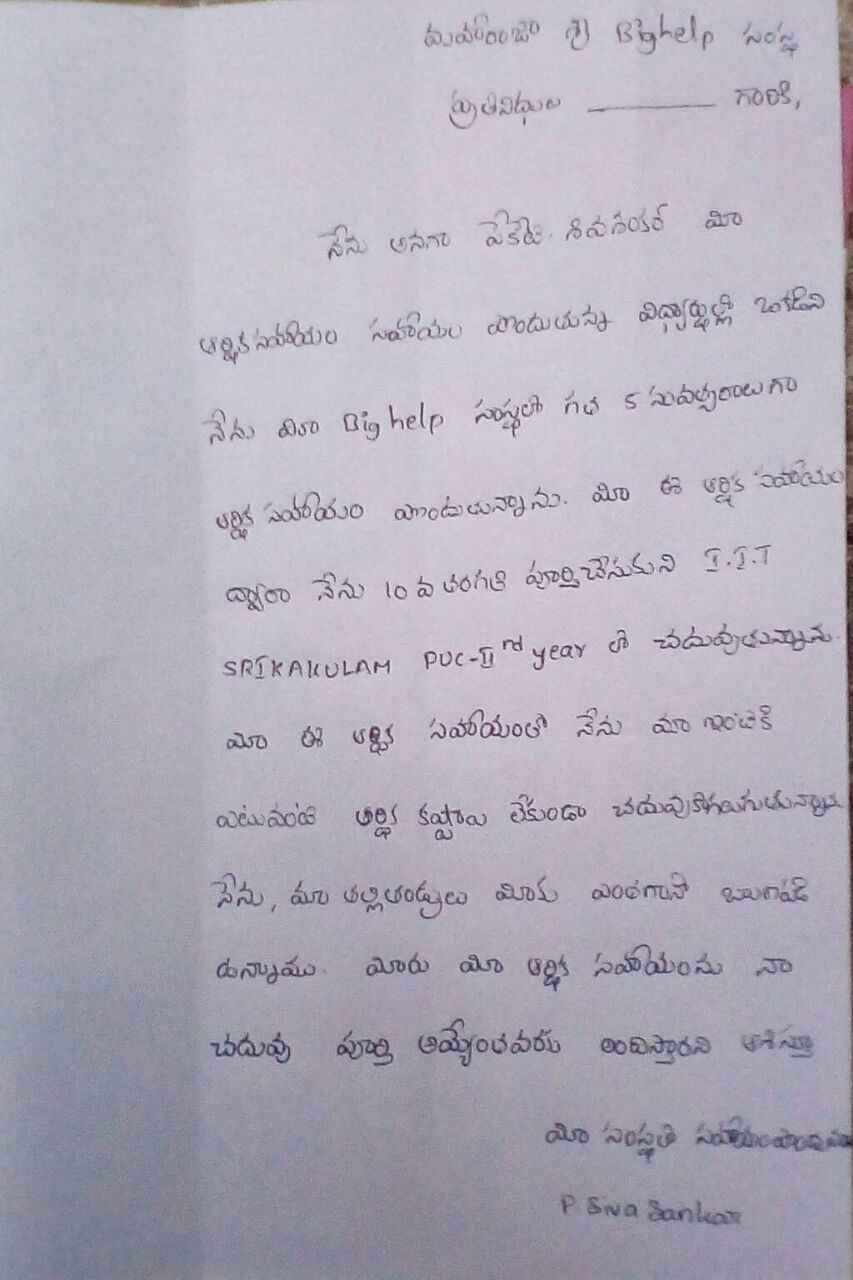 మహారాజా శ్రీ Bighelp సంస్థ
ప్రతినిధుల ______ గారికి,
నేను అనగా పేకేటి. శివశంకర్ మీ
ఆర్థిక సహాయం సహాయం పొందుతున్న విద్యార్థుల్లో ఒకడిని
నేను మీ Big help సంస్థలో గత 5 సంవత్సరాలుగా
ఆర్థిక సహాయం పొందుతున్నాను. మీ ఈ ఆర్థిక సహాయం
ద్వారా నేను 10 వ తరగతి పూర్తిచేసుకుని I.I.T
SRIKAKULAM PUC-II nd year లో చదువుతున్నాను.
మీ ఈ ఆర్థిక సహాయంతో నేను మా ఇంటికి
ఎటువంటి ఆర్థిక కష్టాలు లేకుండా చదువుకోగలుగుతున్నాను
నేను, మా తల్లితండ్రులు మీకు ఎంతగానో ఋణపడి
ఉన్నాము. మీరు మీ ఆర్థిక సహాయంను నా
చదువు పూర్తి అయ్యేంతవరకు అందిస్తారని ఆశిస్తూ
మీ సంస్థతో
P Siva Sankar